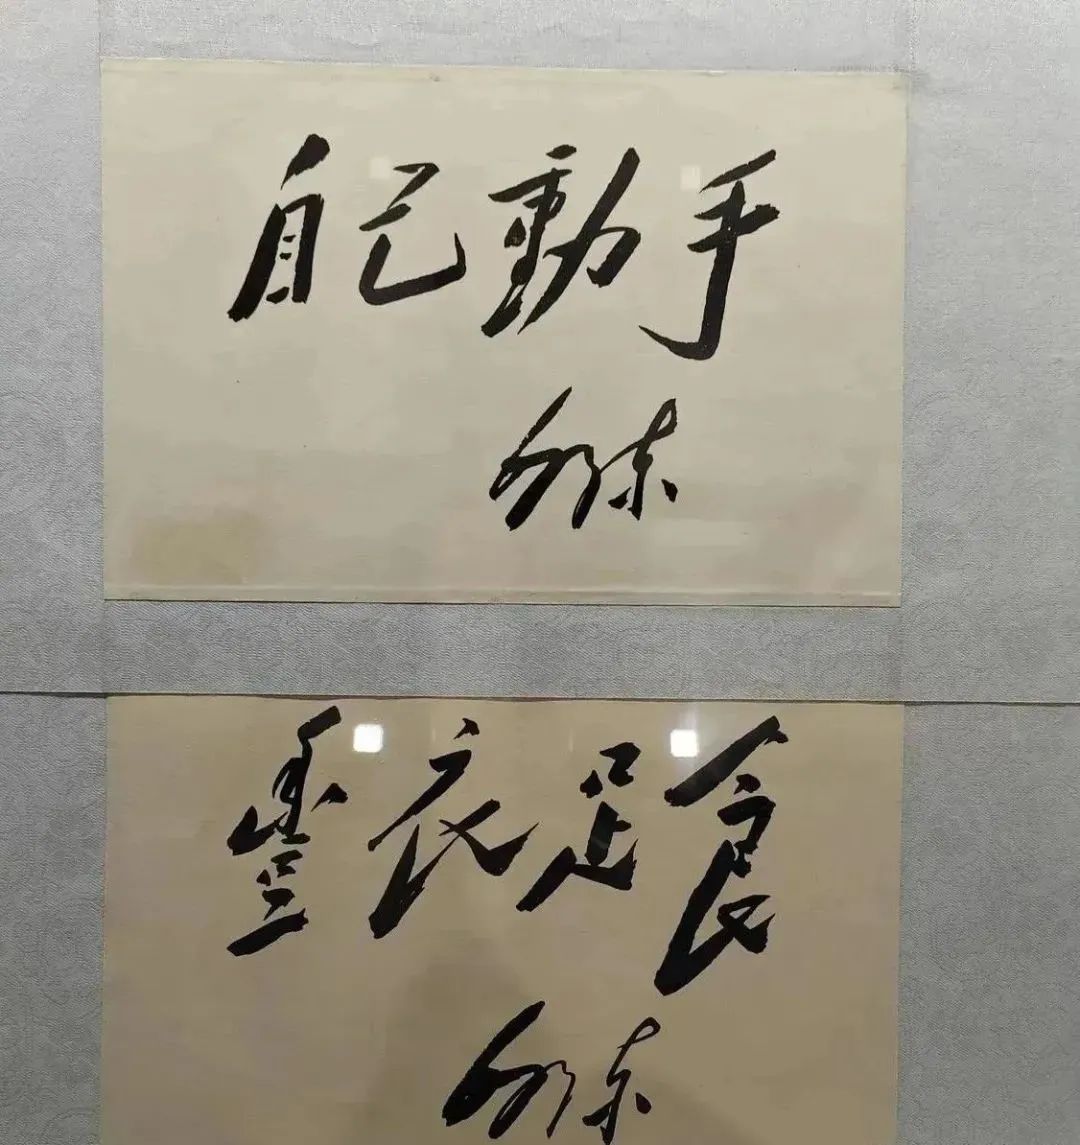 自己動手
澤東
豐衣足食
澤東